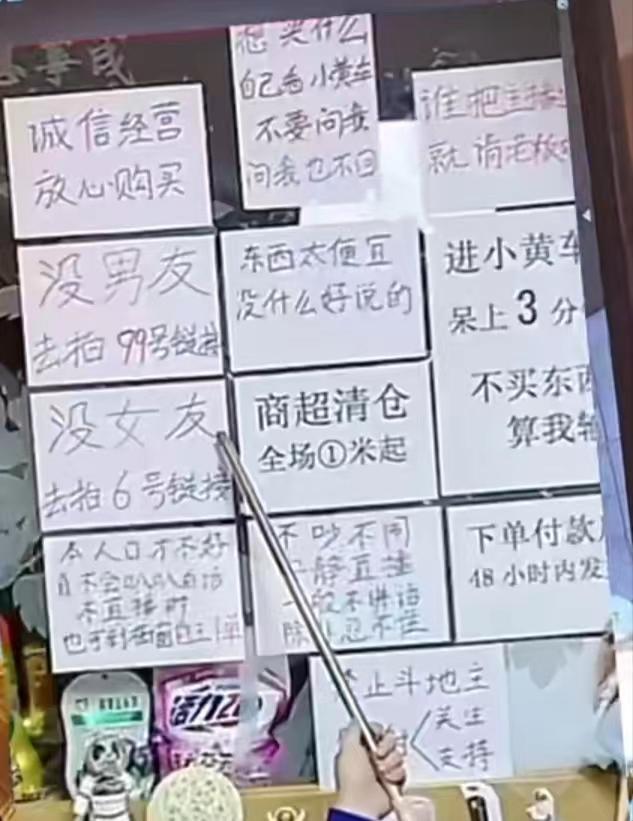 想买什么
自己看小黄车
不要问我
问我也不回
诚信经营
放心购买
谁把主播
就请老板
没男友
去拍99号链接
东西太便宜
没什么好说的
进小黄车
呆上3分
不买东西
算我输
没女友
去拍6号链接
商超清仓
全场①米起
本人口才不好
不吵不闹
安静直播
一般不讲话
除非忍不住
下单付款
48小时内发
禁止斗地主
关注
支持
活力